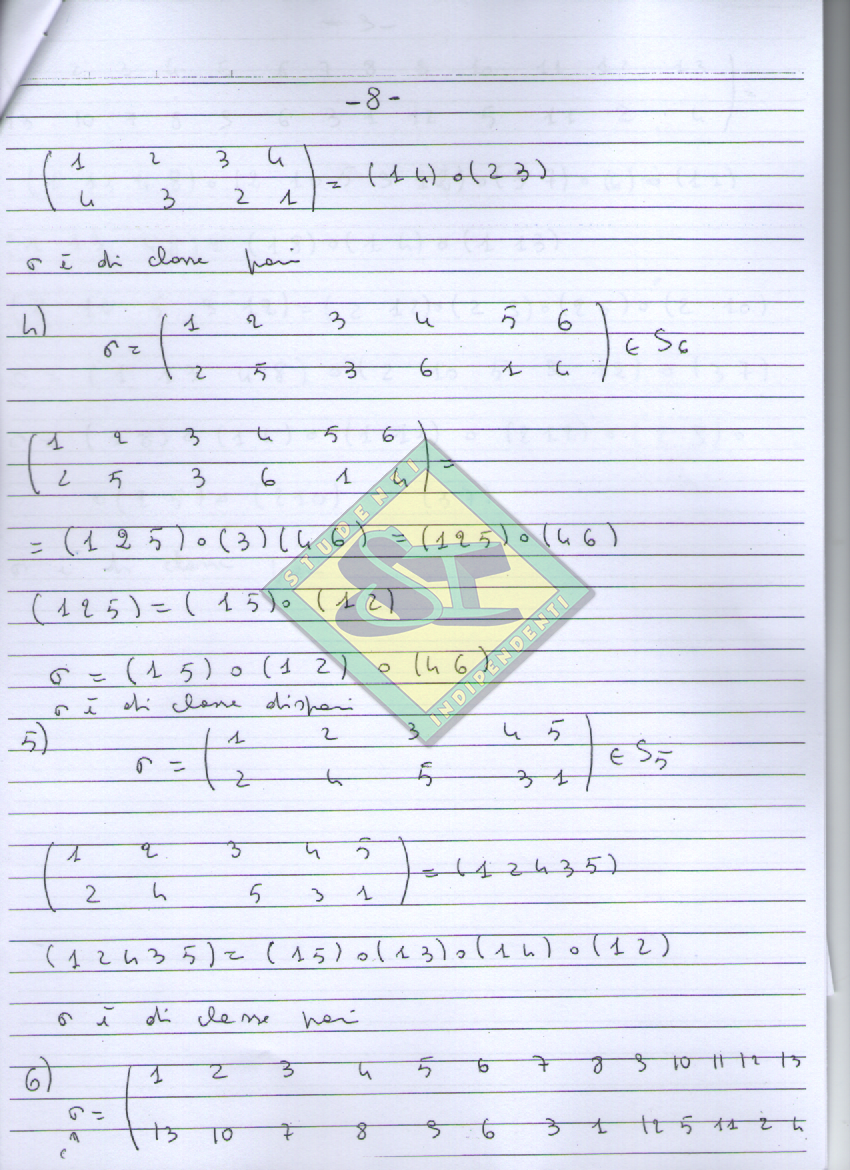 -8-
( 1 2 3 4 ) = (1 4) ∘ (2 3)
( 4 3 2 1 )
σ è di classe pari
4) σ = ( 1 2 3 4 5 6 ) ∈ S6
( 2 5 3 6 1 4 )
( 1 2 3 4 5 6 ) =
( 2 5 3 6 1 4 )
= (1 2 5) ∘ (3)(4 6) = (1 2 5) ∘ (4 6)
(1 2 5) = (1 5) ∘ (1 2)
σ = (1 5) ∘ (1 2) ∘ (4 6)
σ è di classe dispari
5) σ = ( 1 2 3 4 5 ) ∈ S5
( 2 4 5 3 1 )
( 1 2 3 4 5 ) = (1 2 4 3 5)
( 2 4 5 3 1 )
(1 2 4 3 5) = (1 5) ∘ (1 3) ∘ (1 4) ∘ (1 2)
σ è di classe pari
6) σ = ( 1 2 3 4 5 6 7 8 9 10 11 12 13
13 10 7 8 9 6 3 1 12 5 11 2 4
STUDENTI
SI
INDIPENDENTI